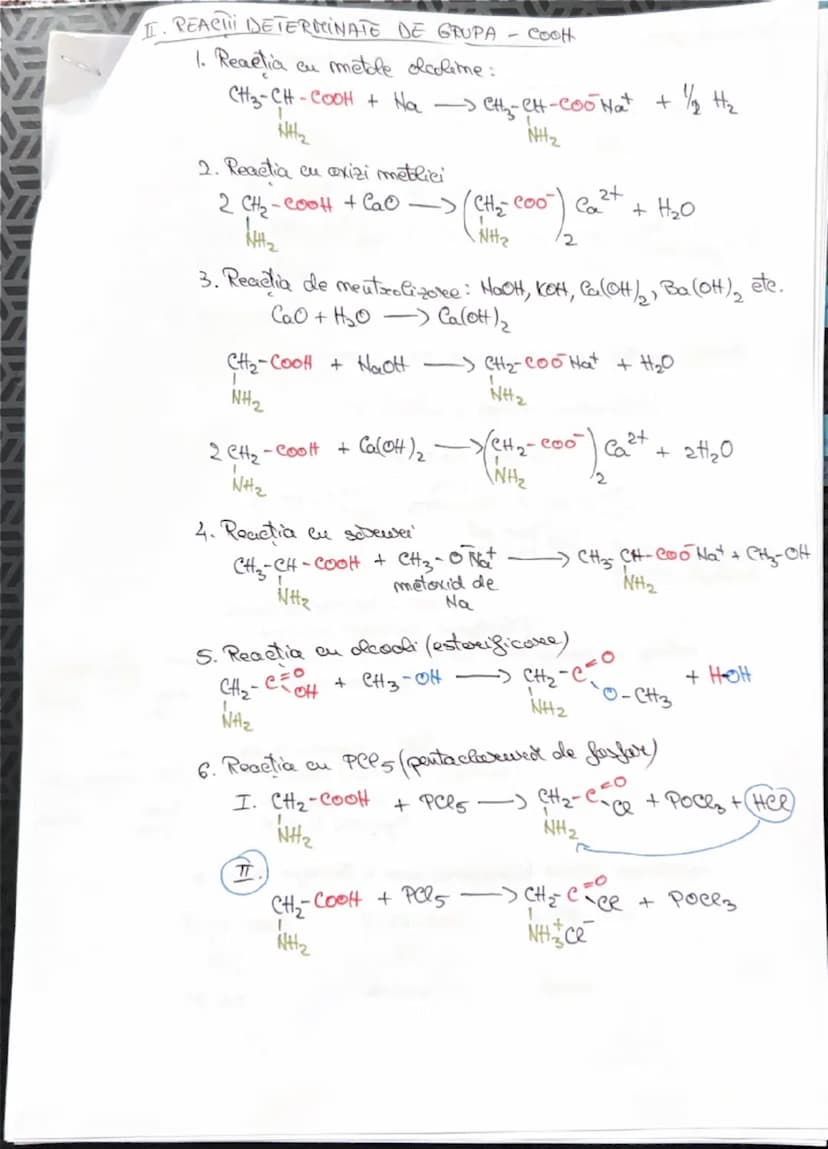 II. REACȚII DETERMINATE DE GRUPA - COOH
1. Reacția cu metale alcaline:
CH3-CH-COOH + Na → CH3-CH-COO⁻Na⁺ + 1/2 H2
NH2 NH2
2. Reacția cu oxizi metalici
2 CH2-COOH + CaO → (CH2-COO⁻)2 Ca²⁺ + H2O
NH2 NH2
3. Reacția de neutralizare: NaOH, KOH, Ca(OH)2, Ba(OH)2 etc.
CaO + H2O → Ca(OH)2
CH2-COOH + NaOH → CH2-COO⁻Na⁺ + H2O
NH2 NH2
2 CH2-COOH + Ca(OH)2 → (CH2-COO⁻)2 Ca²⁺ + 2H2O
NH2 NH2
4. Reacția cu săruri
CH3-CH-COOH + CH3-O⁻Na⁺ → CH3-CH-COO⁻Na⁺ + CH3-OH
NH2 metoxid de NH2
Na
5. Reacția cu alcooli (esterificare)
CH2-C=O OH + CH3-OH → CH2-C=O O-CH3 + HOH
NH2 NH2
6. Reacția cu PCl5 (pentaclorură de fosfor)
I. CH2-COOH + PCl5 → CH2-C=O Cl + POCl3 + HCl
NH2 NH2
II.
CH2-COOH + PCl5 → CH2-C=O Cl + POCl3
NH2 NH3⁺Cl⁻